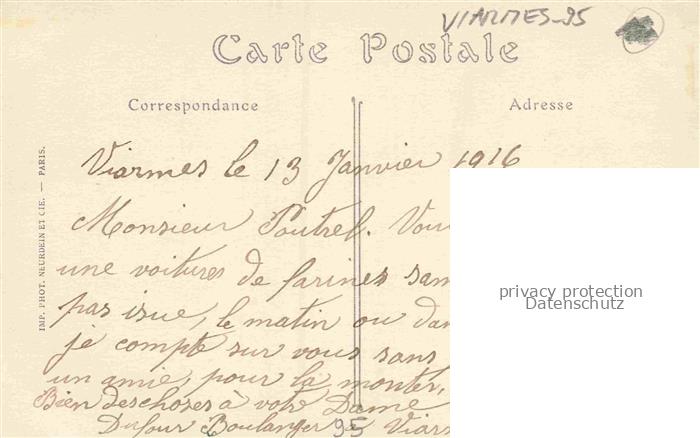 VIARMES-95
Carte Postale
Correspondance
Adresse
IMP. PHOT. NEURDEIN ET CIE. — PARIS.
Viarmes le 13 Janvier 1916
Monsieur Poutrel. Vou
une voitures de farines sam
pas isue, le matin ou dan
je compte sur vous sans
un amie, pour la monter,
Bien des choses a votre Dame
Dufour Boulanger 95 Viarm
privacy protection
Datenschutz